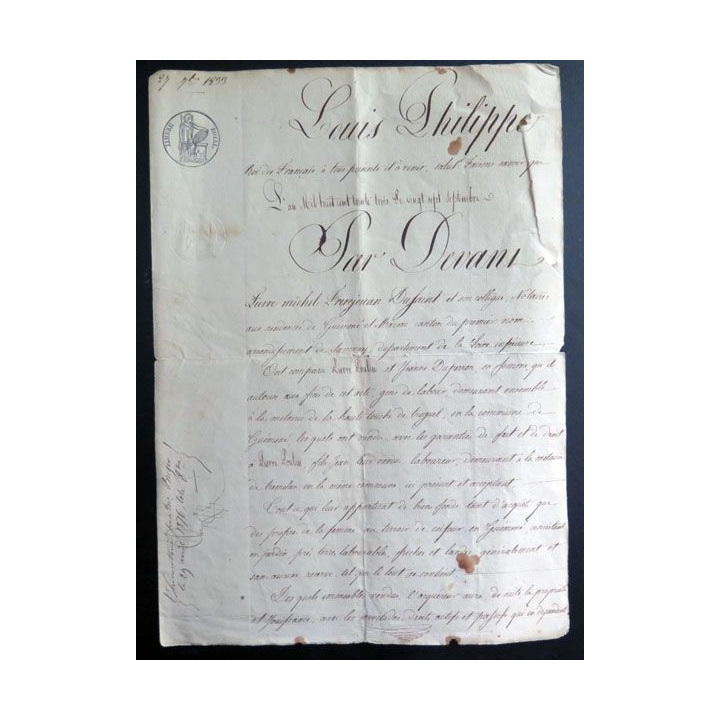 27 7bre 1833
TIMBRE ROYAL
Louis Philippe
Roi des Français, à tous présents et à venir, salut. Faisons savoir que
L'an Mil huit cent trente trois Le vingt sept septembre
Par Devant
Pierre michel Dufeint et son collègue, Notaires
aux résidences de Guémené et canton du premier nom
arrondissement de Savenay, département de la Loire inférieure
Ont comparu Pierre et Jeanne sa femme qu'il
autorise aux fins de cet acte, gens de labour, demeurant ensemble
à la métairie de la haute touche de en la commune de
Guémené lesquels ont vendu avec les garanties de fait et de droit
à Pierre fils Jean leur neveu laboureur, demeurant à la métairie
de en la même commune ici présent et acceptant
Tout ce que leur appartient de bien fonds tant d'acquêts que
des propres de la femme au terroir de en Guémené, consistant
en jardin pré, terres labourables, friches et landes généralement et
sans aucune réserve, tel que le tout se contient
Des quels immeubles vendus, l'acquéreur aura, de suite la propriété
et Jouissance, avec les servitudes, droits actifs et passifs qui en dépendent